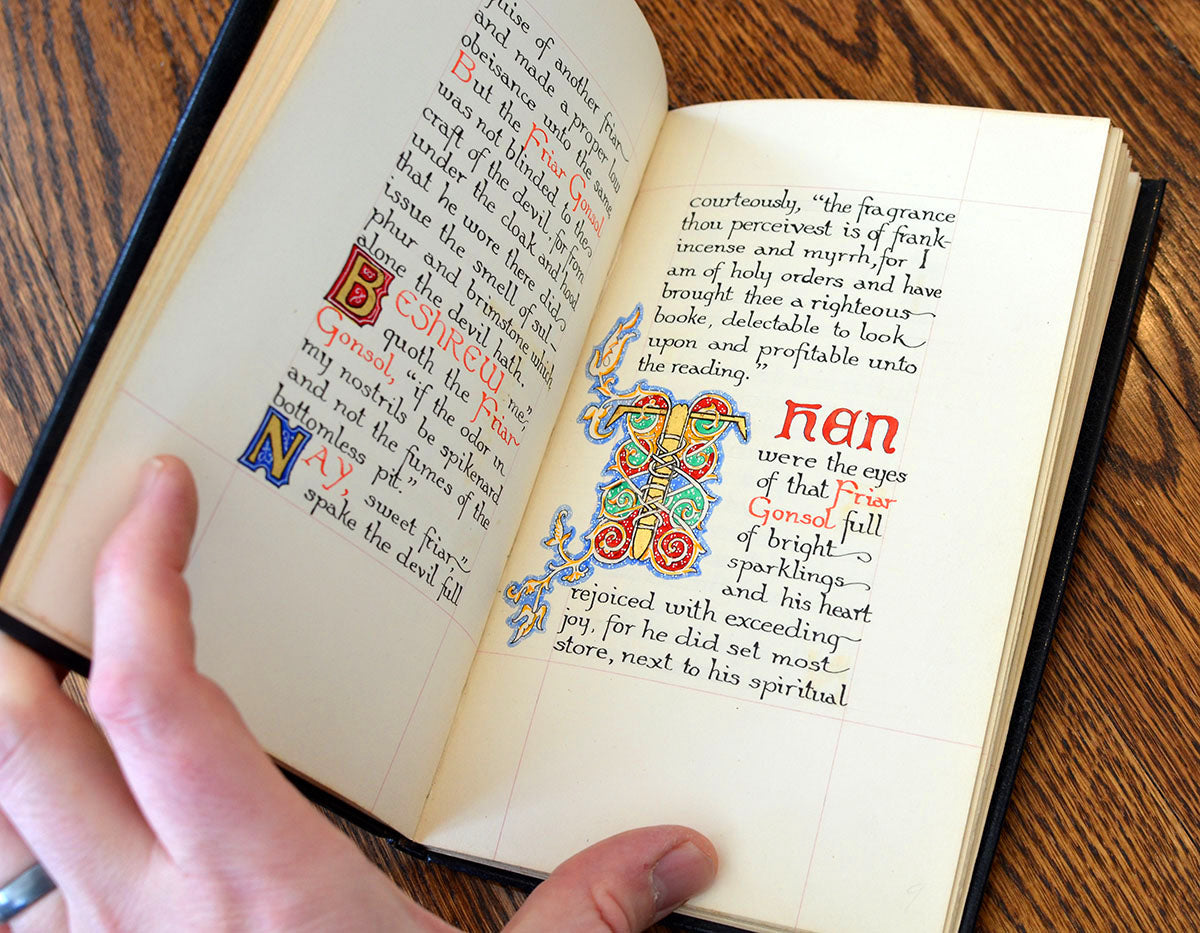 guise of another friar
and made a proper low
obeisance unto the same.
But the Friar Gonsol
was not blinded to the
craft of the devil, for from
under the cloak and hood
that he wore there did
issue the smell of sul-
phur and brimstone which
alone the devil hath.
BESHREW me,"
quoth the Friar
Gonsol, "if the odor in
my nostrils be spikenard
and not the fumes of the
bottomless pit."
NAY, sweet friar,"
spake the devil full
courteously, "the fragrance
thou perceivest is of frank-
incense and myrrh, for I
am of holy orders and have
brought thee a righteous
booke, delectable to look
upon and profitable unto
the reading."
THEN
were the eyes
of that Friar
Gonsol full
of bright
sparklings
and his heart
rejoiced with exceeding
joy, for he did set most
store, next to his spiritual
9